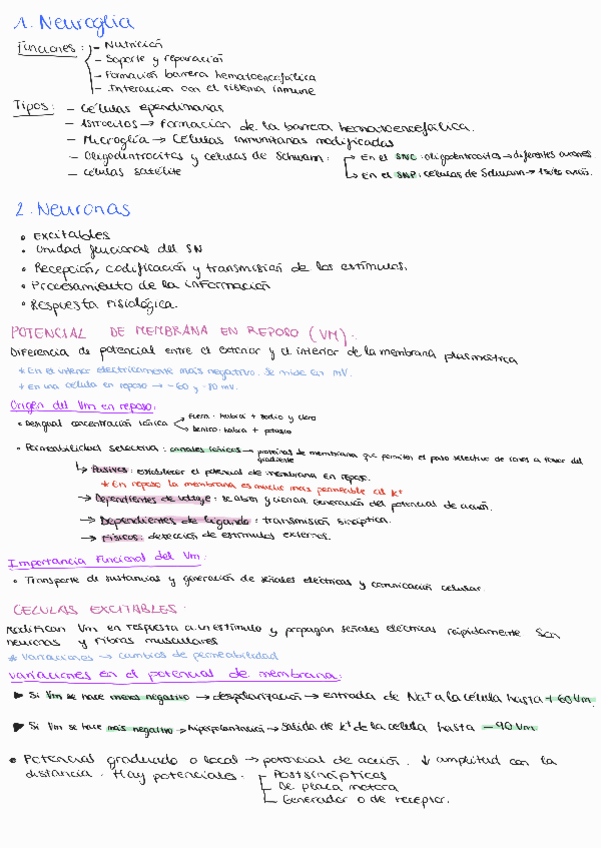 1. Neuroglia
Funciones: - Nutrición
- Soporte y reparación
- Formación barrera hematoencefálica
- Interacción con el sistema inmune
Tipos: - Células ependimarias
- Astrocitos → Formación de la barrera hematoencefálica.
- Microglía → Células inmunitarias modificadas
- Oligodentrocitos y células de Schwann: → En el SNC: oligodentrocitos → diferentes axones
↳ En el SNP: células de Schwann → 1 solo axón.
- células satélite
2. Neuronas
• Excitables
• Unidad funcional del SN
• Recepción, codificación y transmisión de los estímulos.
• Procesamiento de la información
• Respuesta fisiológica.
POTENCIAL DE MEMBRANA EN REPOSO (VM):
Diferencia de potencial entre el exterior y el interior de la membrana plasmática
* En el interior electricamente más negativo. Se mide en mV.
* en una célula en reposo → -60 y -70 mV.
Origen del Vm en reposo:
• Desigual concentración iónica → fuera: habrá + sodio y cloro
→ dentro: habrá + potasio
• Permeabilidad selectiva: canales iónicos → proteínas de membrana que permiten el paso selectivo de iones a favor del
gradiente
↳ Pasivos: establecer el potencial de membrana en reposo.
* En reposo la membrana es mucho más permeable al K⁺
→ Dependientes de voltaje: se abren y cierran. Generación del potencial de acción.
→ Dependientes de ligando: transmisión sináptica.
→ Físicos: detección de estímulos externos.
Importancia Funcional del Vm:
• Transporte de sustancias y generación de señales eléctricas y comunicación celular.
CELULAS EXCITABLES:
Modifican Vm en respuesta a un estímulo y propagan señales eléctricas rápidamente. Son
neuronas y fibras musculares
* Variaciones → cambios de permeabilidad
Variaciones en el potencial de membrana:
► Si Vm se hace menos negativo → despolarización → entrada de Na⁺ a la célula hasta +60 Vm.
► Si Vm se hace más negativo → hiperpolarización → salida de K⁺ de la célula hasta -90 Vm
• Potencial graduado o local → potencial de acción. ↓ amplitud con la
distancia. Hay potenciales: - Postsinápticos
- De placa motora
- Generador o de receptor.